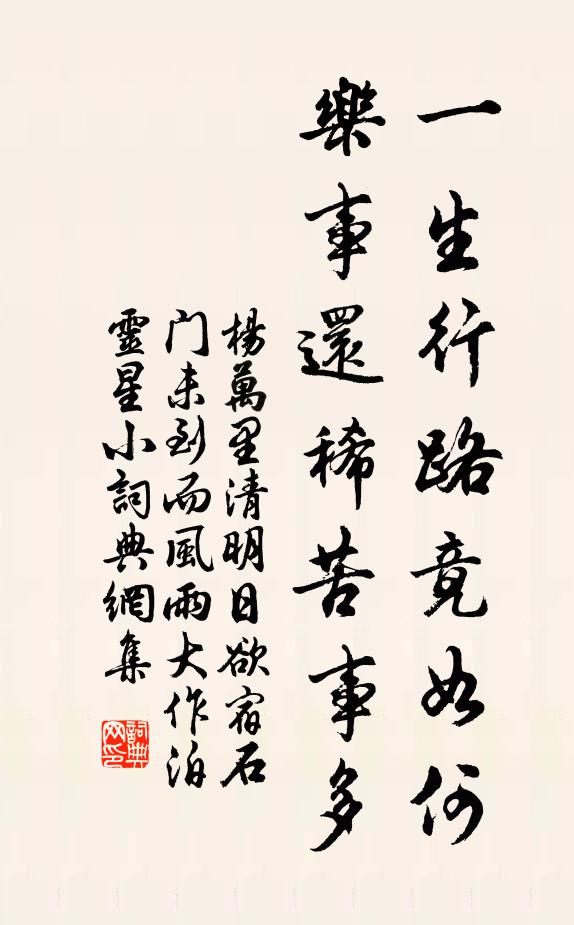 一生行路竟如何
樂事還稀苦事多
楊萬里清明日欲宿石
门未到而風雨大作泊
靈星小詞典網集
詞典
网印